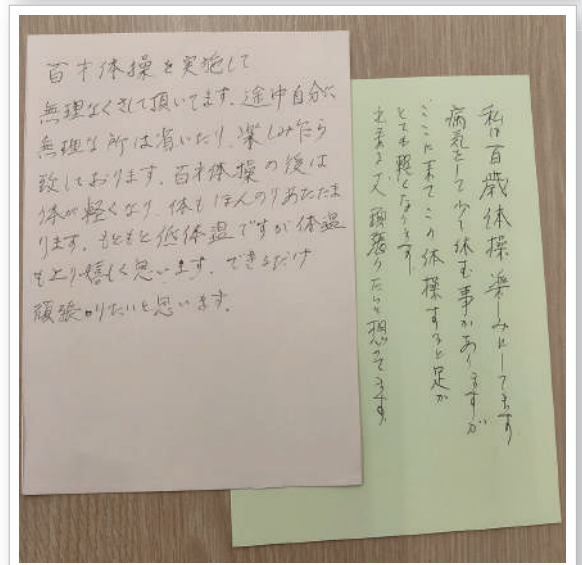 百才体操を実施して
無理なくさして頂いてます。途中自分に
無理な所は省いたり、楽しみ乍ら
致しております。百才体操の後は
体が軽くなり、体もほんのりあたたま
ります。もともと低体温ですが体温
も上り嬉しく思います。できるだけ
頑張りたいと思います。
私は百歳体操楽しみにしてます
病気をして少し休む事がありますが
ここに来てこの体操すると足が
とても軽くなります
出来るだけ頑張りたいと想ってます